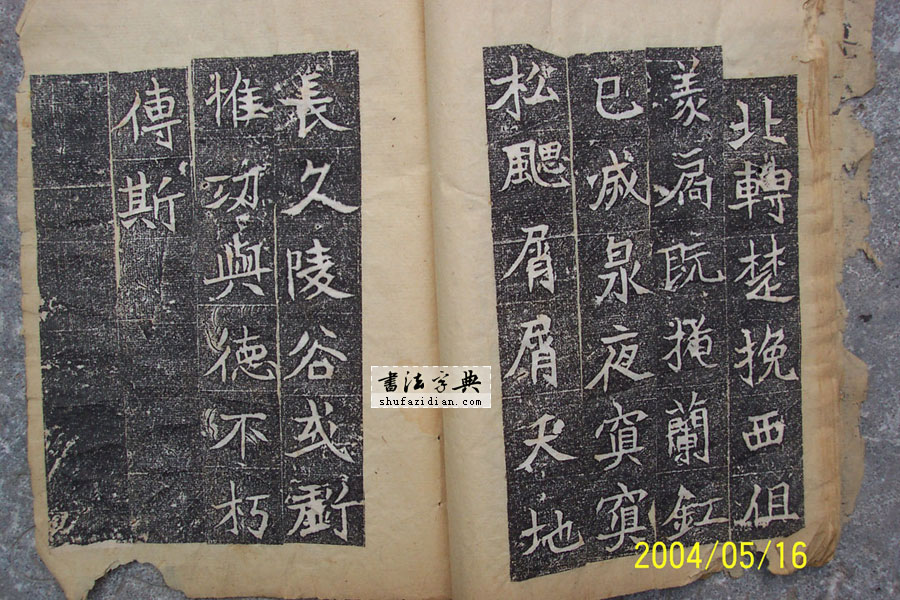 北轉楚挽西徂
羨扃既掩蘭釭
已滅泉夜寘寘
松颸屑屑天地
長久陵谷或虧
惟功與德不朽
傳斯
書法字典
shufazidian.com
2004/05/16